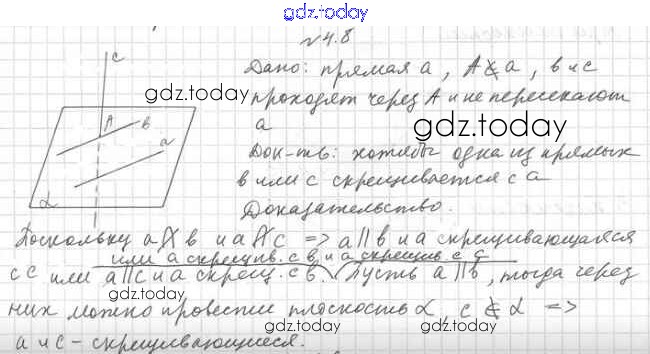 gdz.today
№4.8
c
Дано: прямая a, A∉a, в и с
gdz.today
проходят через A и не пересекают
A
в
a
gdz.today
Док-ть: хотябы одна из прямых
в или с скрещивается с a
α
Доказательство.
Поскольку a ∦ в и a ∦ c => a || в и a скрещивающаяся
или a скрещив. с в и a скрещив с c
с c или a||c и a скрещ. с в. Пусть a || в, тогда через
gdz.today
них можно провести плоскость α, c ⊄ α =>
gdz.today
a и c - скрещивающиеся.